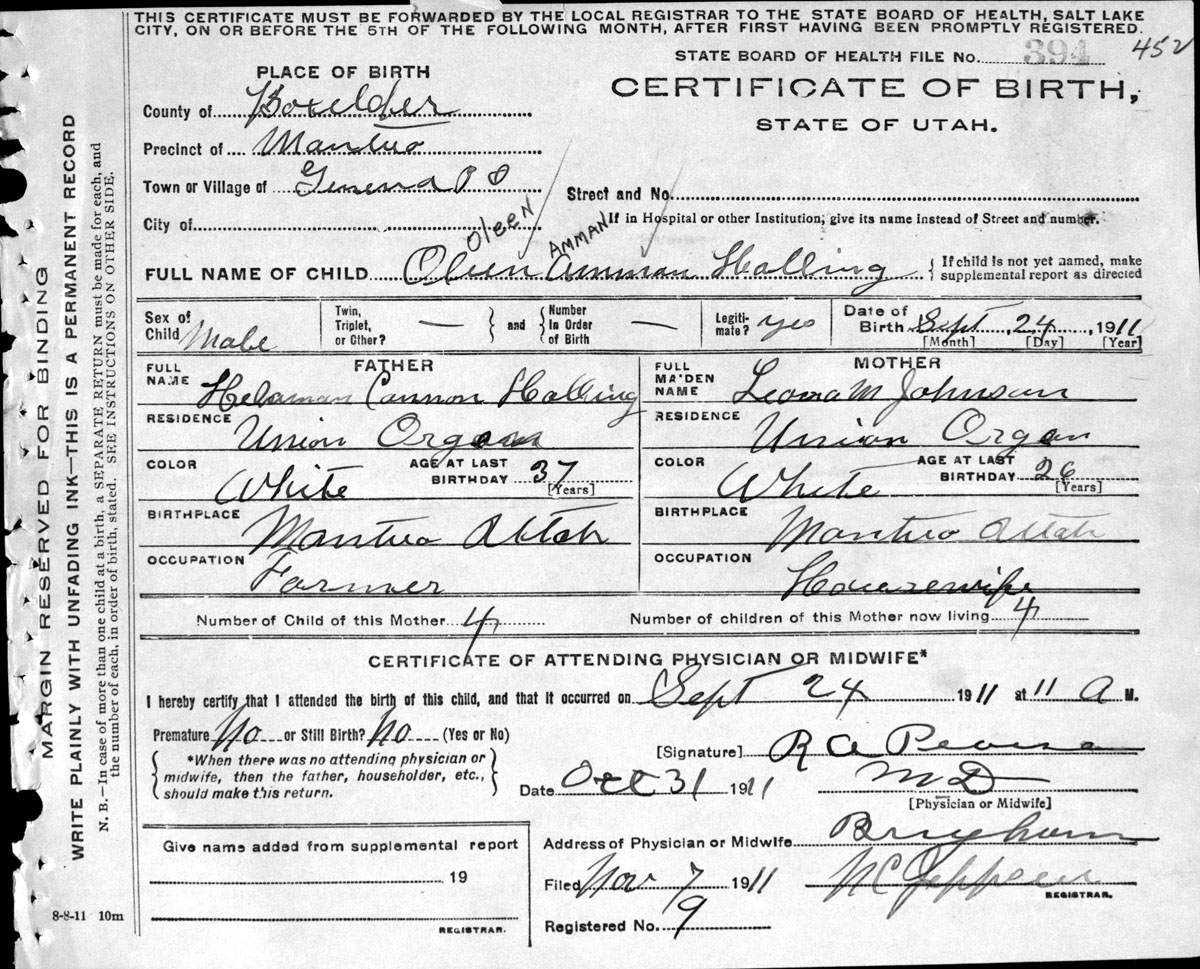 THIS CERTIFICATE MUST BE FORWARDED BY THE LOCAL REGISTRAR TO THE STATE BOARD OF HEALTH, SALT LAKE
CITY, ON OR BEFORE THE 5TH OF THE FOLLOWING MONTH, AFTER FIRST HAVING BEEN PROMPTLY REGISTERED.
STATE BOARD OF HEALTH FILE No. 394 452
PLACE OF BIRTH
CERTIFICATE OF BIRTH,
STATE OF UTAH.
County of Boxelder
Precinct of Mantua
Town or Village of
Street and No.
City of
If in Hospital or other Institution, give its name instead of Street and number.
Oleen AMMAN
FULL NAME OF CHILD Oleen Amman Halling
{ If child is not yet named, make
supplemental report as directed
Sex of Child Male
Twin, Triplet, or Other? — and Number In Order of Birth —
Legiti- mate? yes
Date of Birth Sept 24, 1911
[Month] [Day] [Year]
FATHER
FULL NAME Helaman Cannon Halling
RESIDENCE Union Oregon
COLOR White AGE AT LAST BIRTHDAY 37 [Years]
BIRTHPLACE Mantua Utah
OCCUPATION Farmer
MOTHER
FULL MAIDEN NAME Leona M Johnson
RESIDENCE Union Oregon
COLOR White AGE AT LAST BIRTHDAY 26 [Years]
BIRTHPLACE Mantua Utah
OCCUPATION Housewife
Number of Child of this Mother 4 Number of children of this Mother now living 4
CERTIFICATE OF ATTENDING PHYSICIAN OR MIDWIFE*
I hereby certify that I attended the birth of this child, and that it occurred on Sept 24 1911 at 11 a M.
Premature No or Still Birth? No (Yes or No)
*When there was no attending physician or
midwife, then the father, householder, etc.,
should make this return.
[Signature] R A Pearse
M D
[Physician or Midwife]
Date Oct 31 1911
Give name added from supplemental report
19
REGISTRAR.
Address of Physician or Midwife Brigham
Filed Nov 7 1911 N C Jeppsen
REGISTRAR.
Registered No. 9
8-8-11 10m
MARGIN RESERVED FOR BINDING
WRITE PLAINLY WITH UNFADING INK—THIS IS A PERMANENT RECORD
N. B.—In case of more than one child at a birth, a SEPARATE RETURN must be made for each, and
the number of each, in order of birth, stated. SEE INSTRUCTIONS ON OTHER SIDE.